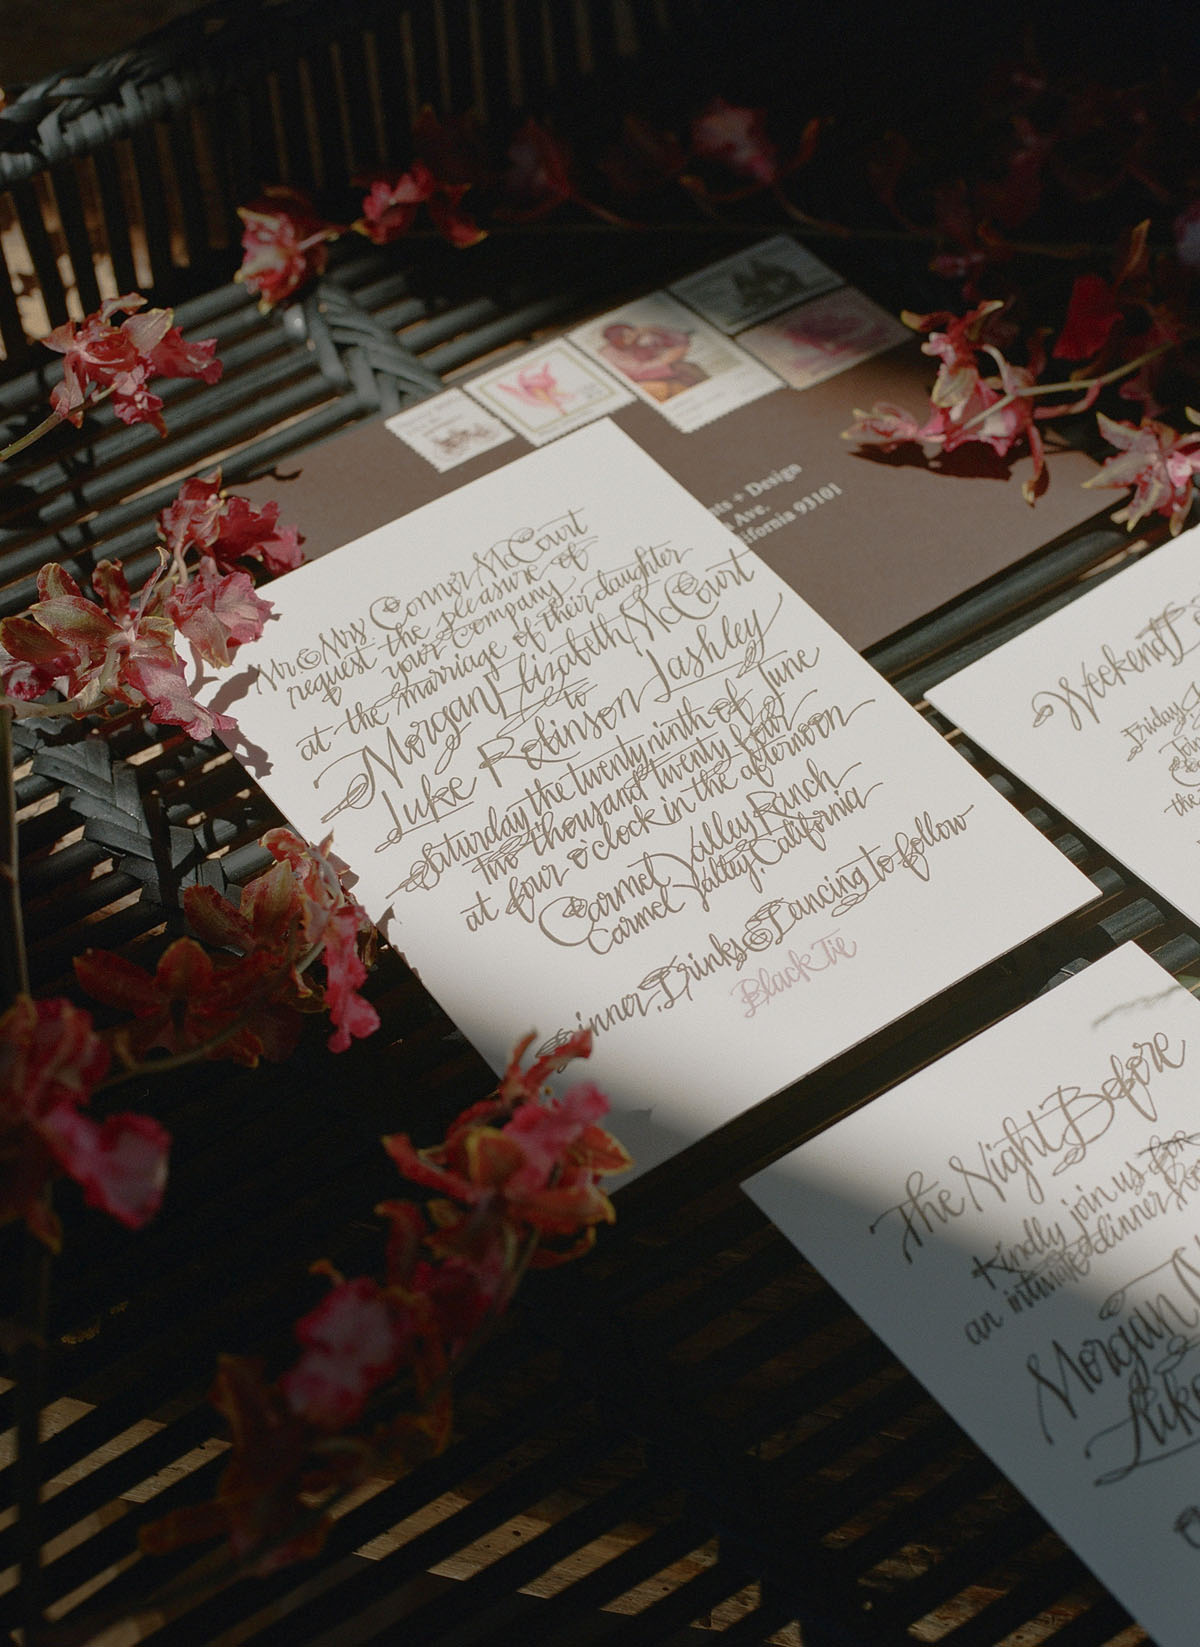 Mr & Mrs. Conner McCourt
request the pleasure of
your company
at the marriage of their daughter
Morgan Elizabeth McCourt
to
Luke Robinson Lashley
Saturday the twenty ninth of June
Two thousand twenty four
at four o'clock in the afternoon
Carmel Valley Ranch
Carmel Valley, California
Dinner, Drinks & Dancing to follow
Black Tie
nts + Design
Ave.
ifornia 93101
Weekend
Friday
Join
the
The Night Before
Kindly join us for
an intimate dinner
Morgan